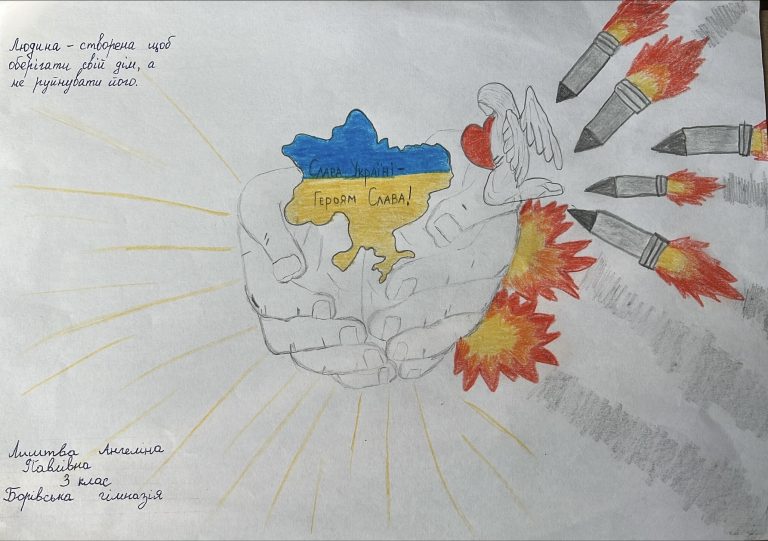 Людина - створена щоб
оберігати свій дім, а
не руйнувати його.
Слава Україні -
Героям Слава!
Лимтва Ангеліна
Павлівна
3 клас
Борівська гімназія